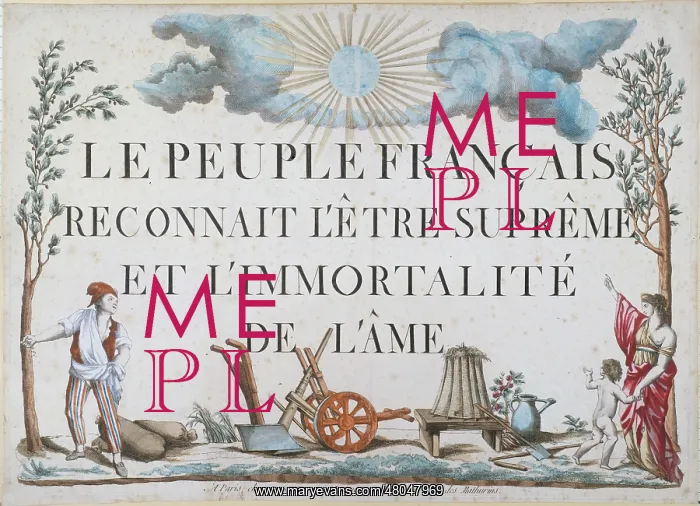 LE PEUPLE FRANÇAIS
RECONNAIT L'ÊTRE SUPRÊME
ET L'IMMORTALITÉ
DE L'ÂME
ME
PL
ME
PL
A Paris
des Mathurins.
www.maryevans.com/48047969